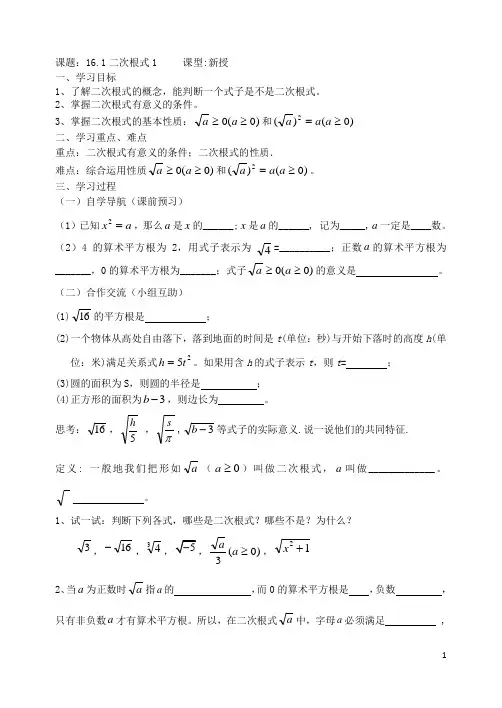 课题：16.1二次根式1 课型:新授
一、学习目标
1、了解二次根式的概念，能判断一个式子是不是二次根式。
2、掌握二次根式有意义的条件。
3、掌握二次根式的基本性质：√a ≥ 0(a ≥ 0) 和 (√a)² = a(a ≥ 0)
二、学习重点、难点
重点：二次根式有意义的条件；二次根式的性质．
难点：综合运用性质√a ≥ 0(a ≥ 0) 和 (√a)² = a(a ≥ 0)。
三、学习过程
（一）自学导航（课前预习）
（1）已知x² = a，那么a是x的______；x是a的______，记为_____,a一定是____数。
（2）4的算术平方根为2，用式子表示为 √4 =__________；正数a的算术平方根为
_______，0的算术平方根为_______；式子√a ≥ 0(a ≥ 0)的意义是 。
（二）合作交流（小组互助）
(1) √16的平方根是 ；
(2)一个物体从高处自由落下，落到地面的时间是t(单位：秒)与开始下落时的高度h(单
位：米)满足关系式h = 5t²。如果用含h的式子表示t，则t= ；
(3)圆的面积为S，则圆的半径是 ；
(4)正方形的面积为b − 3，则边长为 。
思考：√16，√(h/5)，√(s/π)，√(b − 3)等式子的实际意义.说一说他们的共同特征.
定义: 一般地我们把形如√a（a ≥ 0）叫做二次根式，a叫做_____________。
√ ______________。
1、试一试：判断下列各式，哪些是二次根式？哪些不是？为什么？
√3，−√16，∛4，√−5，√a/3 (a ≥ 0)，√(x² + 1)
2、当a为正数时√a指a的 ，而0的算术平方根是 ，负数 ，
只有非负数a才有算术平方根。所以，在二次根式√a中，字母a必须满足 ，
1